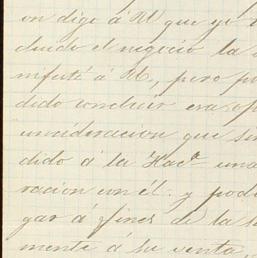 on dige á M que ya
cluido el negocio la
nifesté á M, pero
dido concluir era
unsideracion que sin
dido á la Hacª una
racion con él: y podi
gar á fines de la s
mente á su venta,